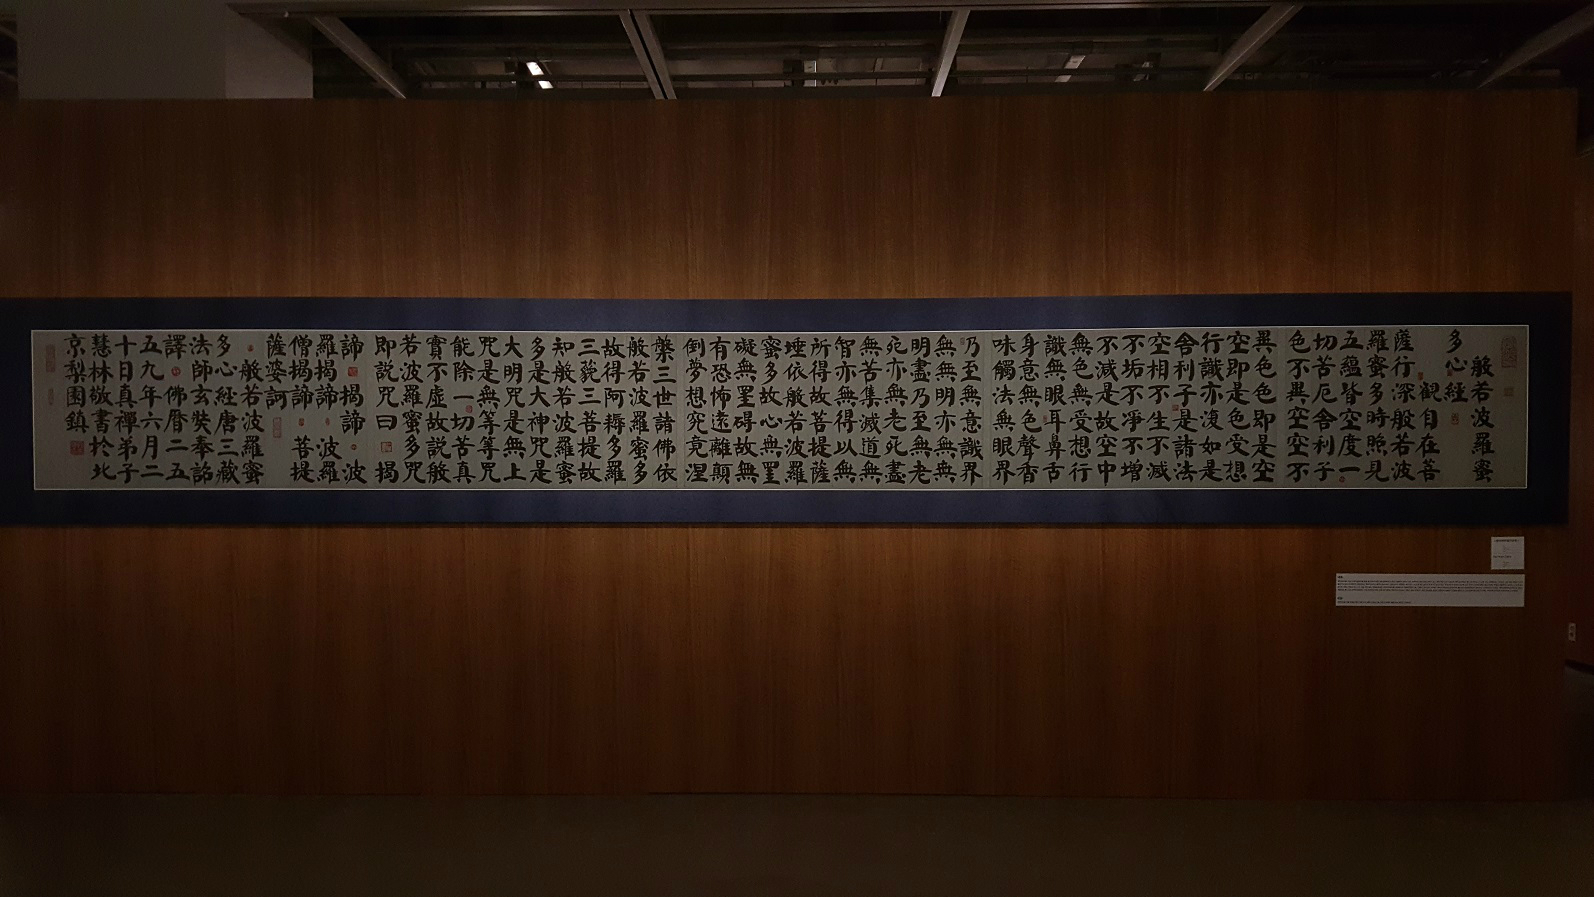 般若波羅蜜
多心經
觀自在菩
薩行深般若波
羅蜜多時照見
五蘊皆空度一
切苦厄舍利子
色不異空空不
異色色即是空
空即是色受想
行識亦復如是
舍利子是諸法
空相不生不滅
不垢不淨不增
不減是故空中
無色無受想行
識無眼耳鼻舌
身意無色聲香
味觸法無眼界
乃至無意識界
無無明亦無無
明盡乃至無老
死亦無老死盡
無苦集滅道無
智亦無得以無
所得故菩提薩
埵依般若波羅
蜜多故心無罣
礙無罣碍故無
有恐怖遠離顛
倒夢想究竟涅
槃三世諸佛依
般若波羅蜜多
故得阿耨多羅
三藐三菩提故
知般若波羅蜜
多是大神咒是
大明咒是無上
咒是無等等咒
能除一切苦真
實不虛故說般
若波羅蜜多咒
即說咒曰 揭
諦 揭諦 波
羅揭諦 波羅
僧揭諦 菩提
薩婆訶
般若波羅蜜
多心經唐三藏
法師玄奘奉詔
譯 佛曆二五
五九年六月二
十日真禪弟子
慧林敬書於北
京梨園鎮